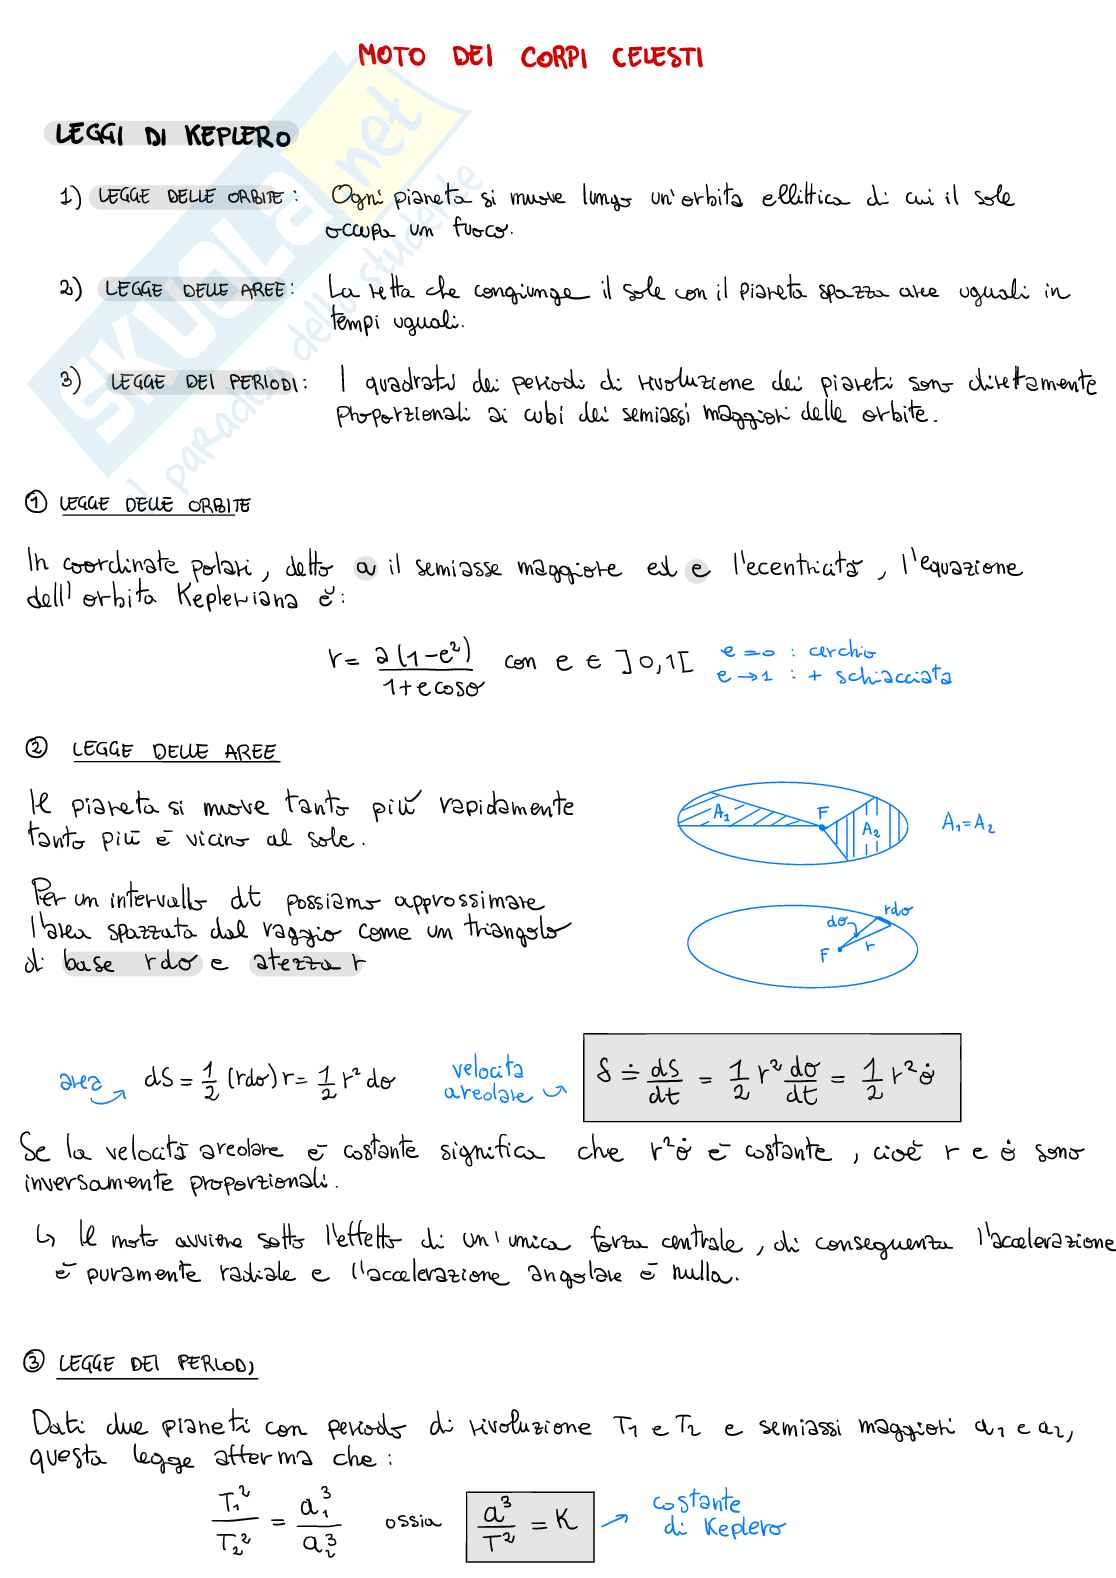 MOTO DEI CORPI CELESTI
LEGGI DI KEPLERO
1) LEGGE DELLE ORBITE : Ogni pianeta si muove lungo un'orbita ellittica di cui il sole
occupa un fuoco.
2) LEGGE DELLE AREE : La retta che congiunge il sole con il pianeta spazza aree uguali in
tempi uguali.
3) LEGGE DEI PERIODI : I quadrati dei periodi di rivoluzione dei pianeti sono direttamente
proporzionali ai cubi dei semiassi maggiori delle orbite.
SKUOLA.net
il paradiso dello studente
① LEGGE DELLE ORBITE
In coordinate polari, detto a il semiasse maggiore ed e l'ecentricità, l'equazione
dell'orbita Kepleriana è:
r = a(1-e²) / 1+e cosσ con e ∈ ]0,1[
e=0 : cerchio
e→1 : + schiacciata
② LEGGE DELLE AREE
Il pianeta si muove tanto più rapidamente
tanto più è vicino al sole.
A₁ F A₂ A₁=A₂
Per un intervallo dt possiamo approssimare
l'area spazzata dal raggio come un triangolo
di base rdσ e atezza r
dσ rdσ
F r
area dS = 1/2 (rdσ) r = 1/2 r² dσ
velocità
areolare
Ṡ ≐ dS/dt = 1/2 r² dσ/dt = 1/2 r² σ̇
Se la velocità areolare è costante significa che r²σ̇ è costante, cioè r e σ̇ sono
inversamente proporzionali.
↳ Il moto avviene sotto l'effetto di un'unica forza centrale, di conseguenza l'accelerazione
è puramente radiale e l'accelerazione angolare è nulla.
③ LEGGE DEI PERIODI
Dati due pianeti con periodo di rivoluzione T₁ e T₂ e semiassi maggiori a₁ e a₂,
questa legge afferma che:
T₁²/T₂² = a₁³/a₂³ ossia a³/T² = K
costante
di Keplero